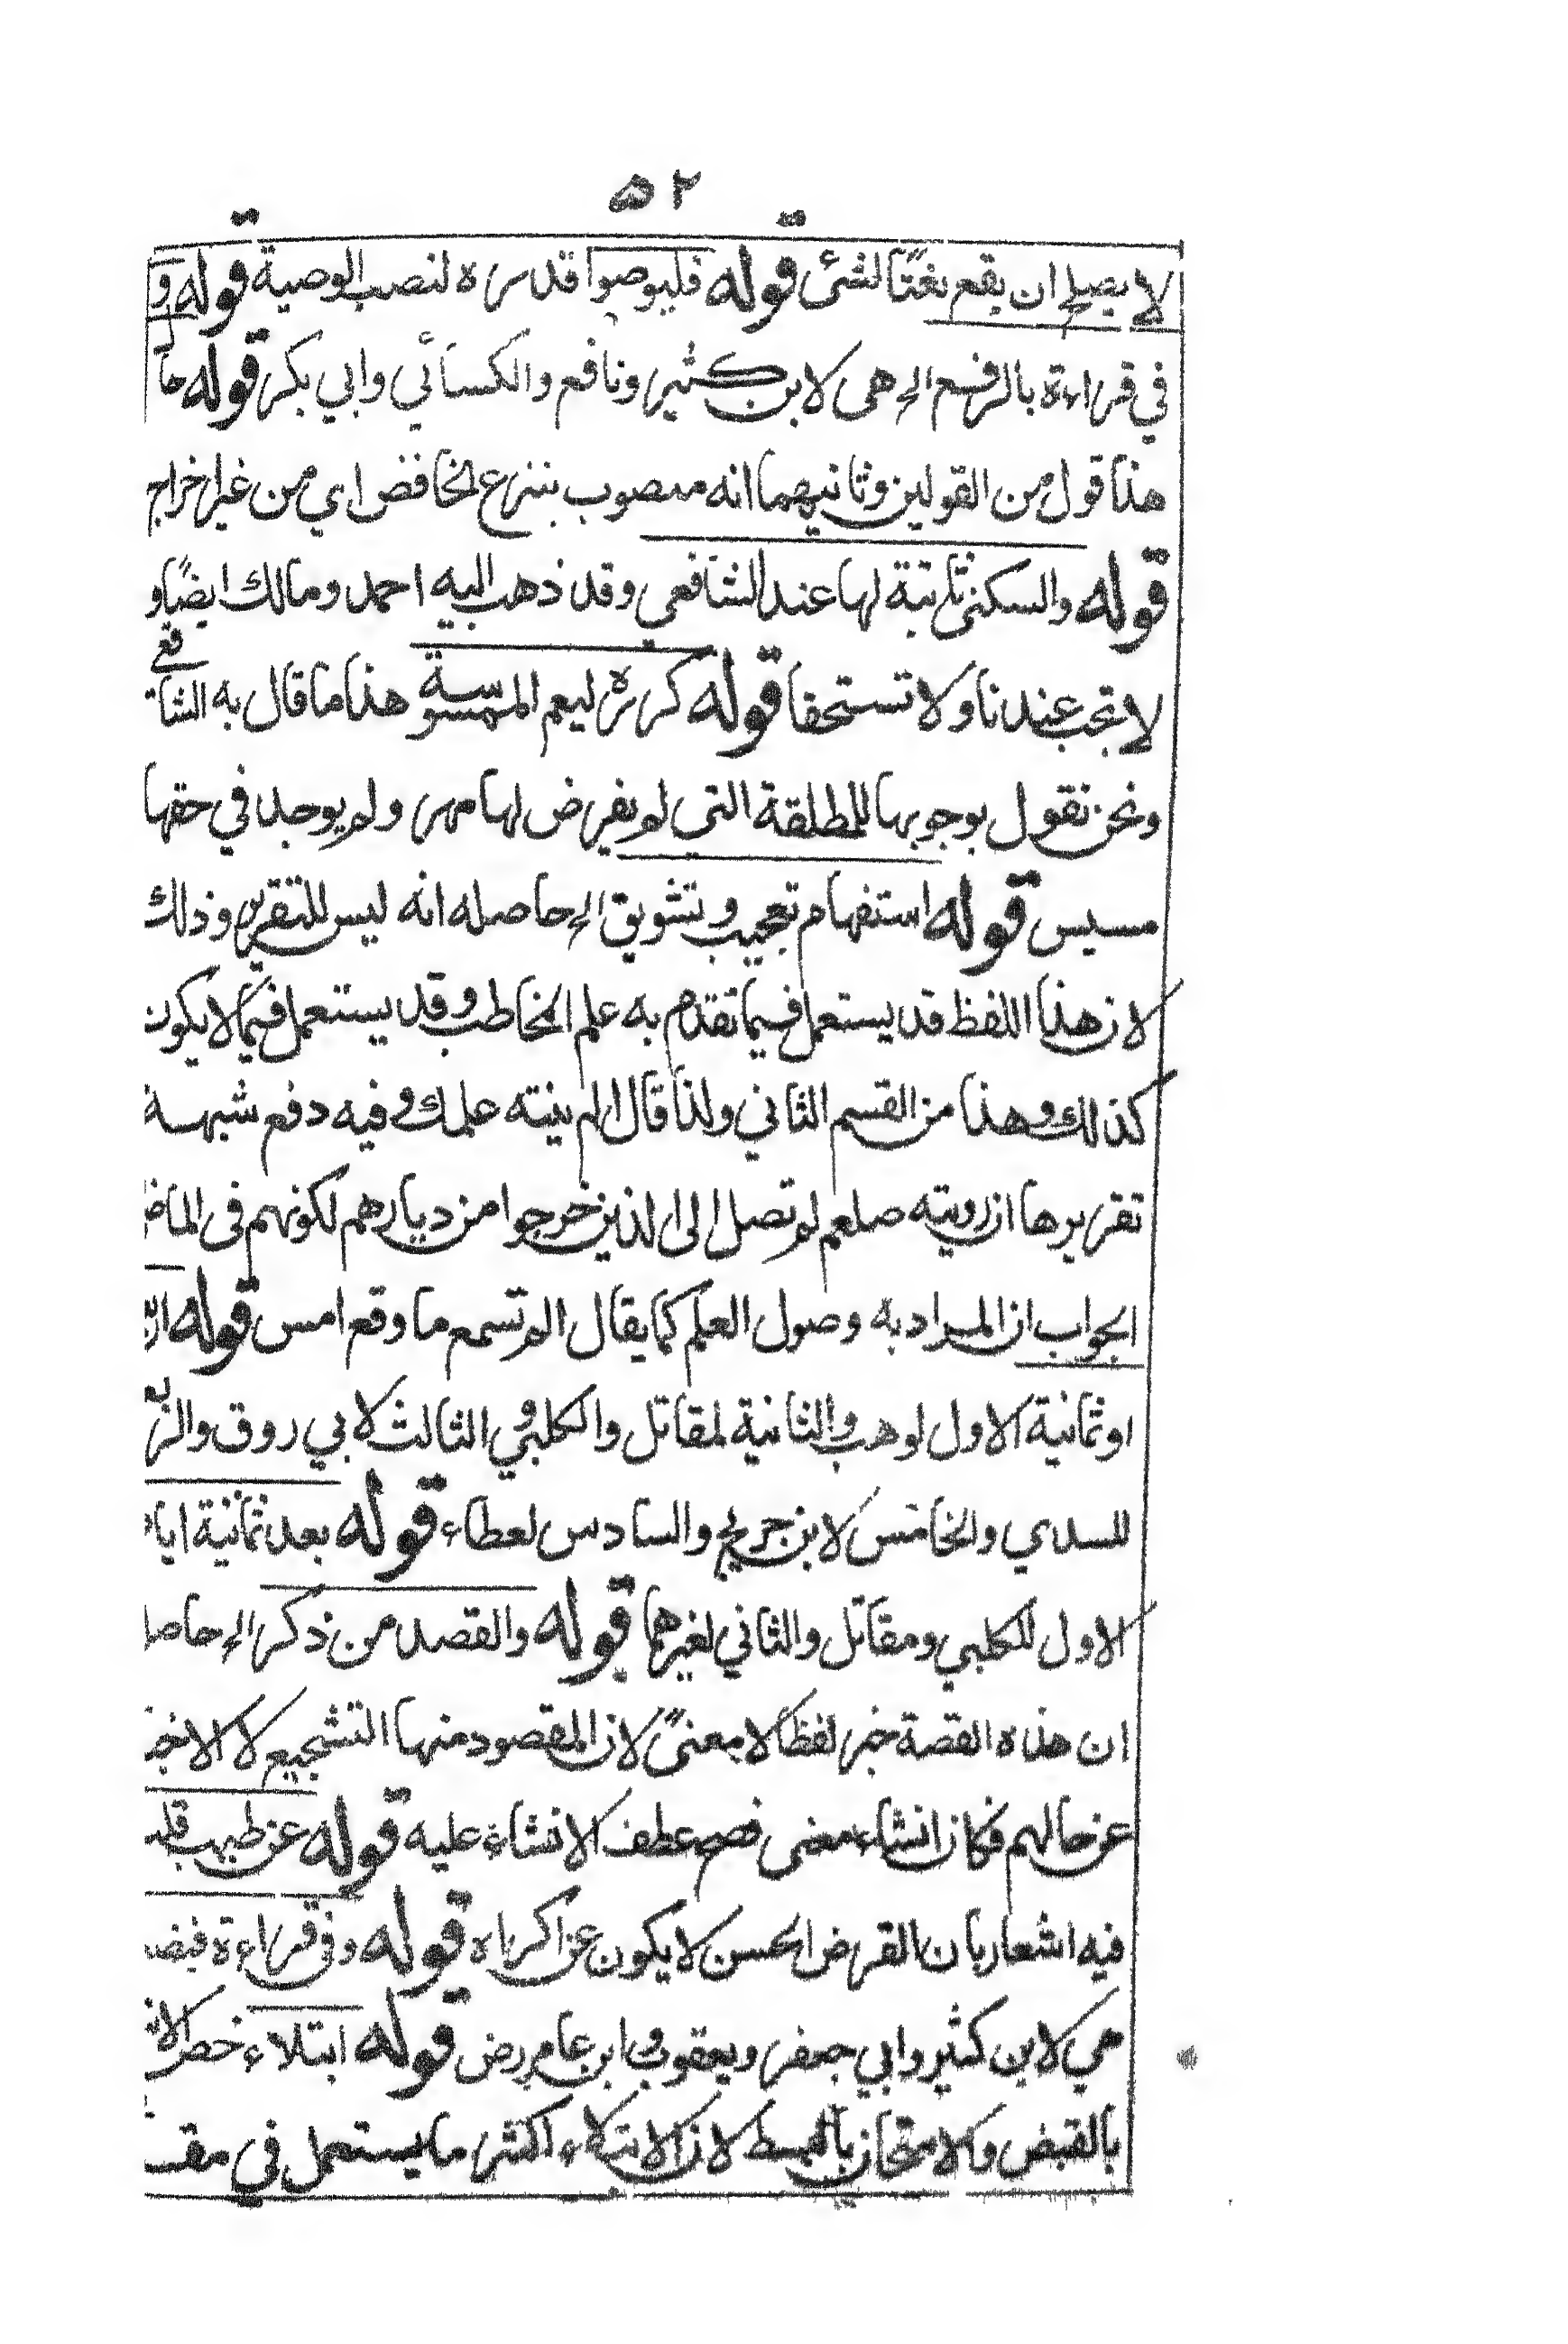 ٥٢
لا يصلح ان يقع نعتًا لشئ قوله فليوصوا قدره لنصب الوصية قوله و
في قراءة بالرفع الخ هى لابن كثير ونافع والكسائي وابي بكر قوله حا
هذا قول من القولين وثانيهما انه منصوب بنزع الخافض اي من غير اخراج
قوله والسكنى ثابتة لها عند الشافعي وقد ذهب اليه احمد ومالك ايضًا و
لا تجب عندنا ولا تستحقا قوله كرره ليعم الممسوسة هذا ما قال به الشافعي
ونحن نقول بوجوبها للمطلقة التي لم يفرض لها مهر ولم يوجد في حقها
مسيس قوله استفهام تعجيب وتشويق الخ حاصله انه ليس للتقرير وذلك
لان هذا اللفظ قد يستعمل فيما تقدم به علم المخاطب وقد يستعمل فيما لا يكون
كذلك وهذا من القسم الثاني ولذا قال الم ينته علمك وفيه دفع شبهة
تقريرها ان رويته صلعم لم تصل الى الذين خرجوا من ديارهم لكونهم فى الماض
الجواب ان المراد به وصول العلم كما يقال الم تسمع ما وقع امس قوله
او ثمانية الاول لوهب والثانية لمقاتل والكلبي و الثالث لابي روق والرابع
للسدي والخامس لابن جريج والسادس لعطاء قوله بعد ثمانية ايام
الاول للكلبي ومقاتل والثاني لغيرهما قوله والقصد من ذكر الخ حاصل
ان هذه القصة خبر لفظًا لا معنىً لان المقصود منها التشجيع لا الاخبـ
عن حالهم فكان انشاء معنى فصح عطف الانشاء عليه قوله عن طيب قلب
فيه اشعار بان القرض الحسن لا يكون عن اكراه قوله وفي قراءة فيضعـ
هي لابن كثير وابي جعفر ويعقوب وابن عامر رض قوله ابتلاء خص الابـ
بالقبض والامتحان بالبسط لان الابتلاء اكثر ما يستعمل في مقـ